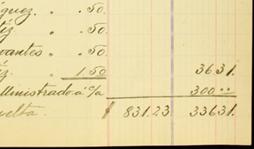 quez. " .50
tiz " .50
vantes " .50
iz. 1.50 3631.
ministrado á c/a 300 ..
uelta. $ 831.23 33631.